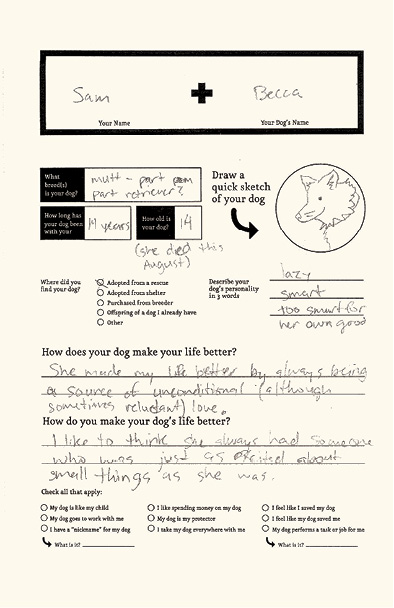 Sam + Becca
Your Name Your Dog's Name
What breed(s) is your dog?
mutt - part
part retriever?
Draw a quick sketch of your dog
How long has your dog been with you?
14 years
How old is your dog?
14
(she died this
August)
Where did you find your dog?
Adopted from a rescue
Adopted from shelter
Purchased from breeder
Offspring of a dog I already have
Other
Describe your dog's personality in 3 words
lazy
smart
too smart for
her own good
How does your dog make your life better?
She made my life better by always being
a source of unconditional (although
sometimes reluctant) love.
How do you make your dog's life better?
I like to think she always had someone
who was just as excited about
small things as she was.
Check all that apply:
My dog is like my child
My dog goes to work with me
I have a "nickname" for my dog
What is it?
I like spending money on my dog
My dog is my protector
I take my dog everywhere with me
I feel like I saved my dog
I feel like my dog saved me
My dog performs a task or job for me
What is it?